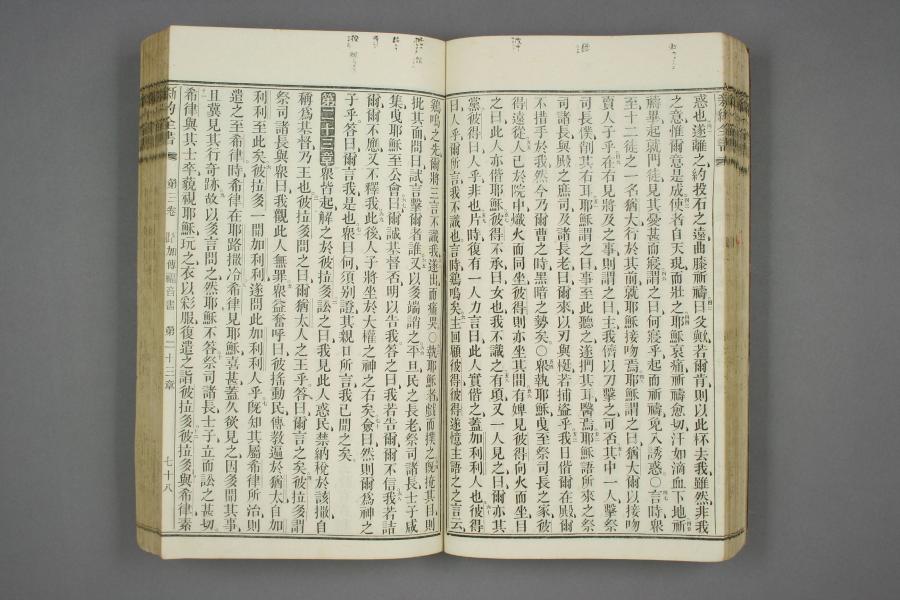 惑也遂離之約投石之遠曲膝祈禱曰父歟若爾肯則以此杯去我雖然非我
之意惟爾意是成使者自天現而壯之耶穌哀痛祈禱愈切汗如滴血下地祈
禱畢起就門徒見其憂甚而寢謂之曰何寢乎起而祈禱免入誘惑○言時衆
至十二徒之一名猶大行於其前就耶穌接吻焉耶穌謂之曰猶大爾以接吻
賣人子乎在右見將及之事則謂之曰主我儕以刃擊之可否其中一人擊祭
司長僕削其右耳耶穌謂之曰事至此聽之遂捫其耳醫焉耶穌語所來之祭
司諸長與殿之庶司及諸長老曰爾來以刃與梃若捕盜乎我日偕爾在殿爾
不措手於我然今乃爾曹之時黑暗之勢矣○衆執耶穌曳至祭司長之家彼
得遠從人已於院中熾火而同坐彼得則亦坐其間有婢見彼得向火而坐目
之曰此人亦偕耶穌彼得不承曰女也我不識之有頃又一人見之曰爾亦其
黨彼得曰人乎非也片時復有一人力言曰此人實偕之蓋加利利人也彼得
曰人乎爾所言我不識也言時鷄鳴矣主回顧彼得彼得遂憶主語之之言云
鷄鳴之先爾將三言不識我遂出而痛哭○執耶穌者戲而撲之旣掩其目則
批其面問曰試言擊爾者誰又以多端誚之平旦民之長老祭司諸長士子咸
集曳耶穌至公會曰爾誠基督否明以告我答之曰我若告爾爾不信我若詰
爾爾不應又不釋我此後人子將坐於大權之神之右矣僉曰然則爾爲神之
子乎答曰爾言我是也衆曰何須别證其親口所言我已聞之矣
第二十三章 衆皆起解之於彼拉多訟之曰我見此人惑民禁納稅於該撒自
稱爲基督乃王也彼拉多問之曰爾猶太人之王乎答曰爾言之矣彼拉多謂
祭司諸長與衆曰我觀此人無罪衆益奮呼曰彼搖動民傳教遍於猶太自加
利利至此矣彼拉多一聞加利利遂問此加利利人乎旣知其屬希律所治則
遣之至希律時希律在耶路撒冷希律見耶穌喜甚蓋久欲見之因多聞其事
且冀見其行奇跡故以多言問之然耶穌不答祭司諸長士子立而訟之甚切
希律與其士卒藐視耶穌玩之衣以彩服復遣之詣彼拉多彼拉多與希律素
新約全書 第三卷 路加傳福音書 第二十三章 七十八